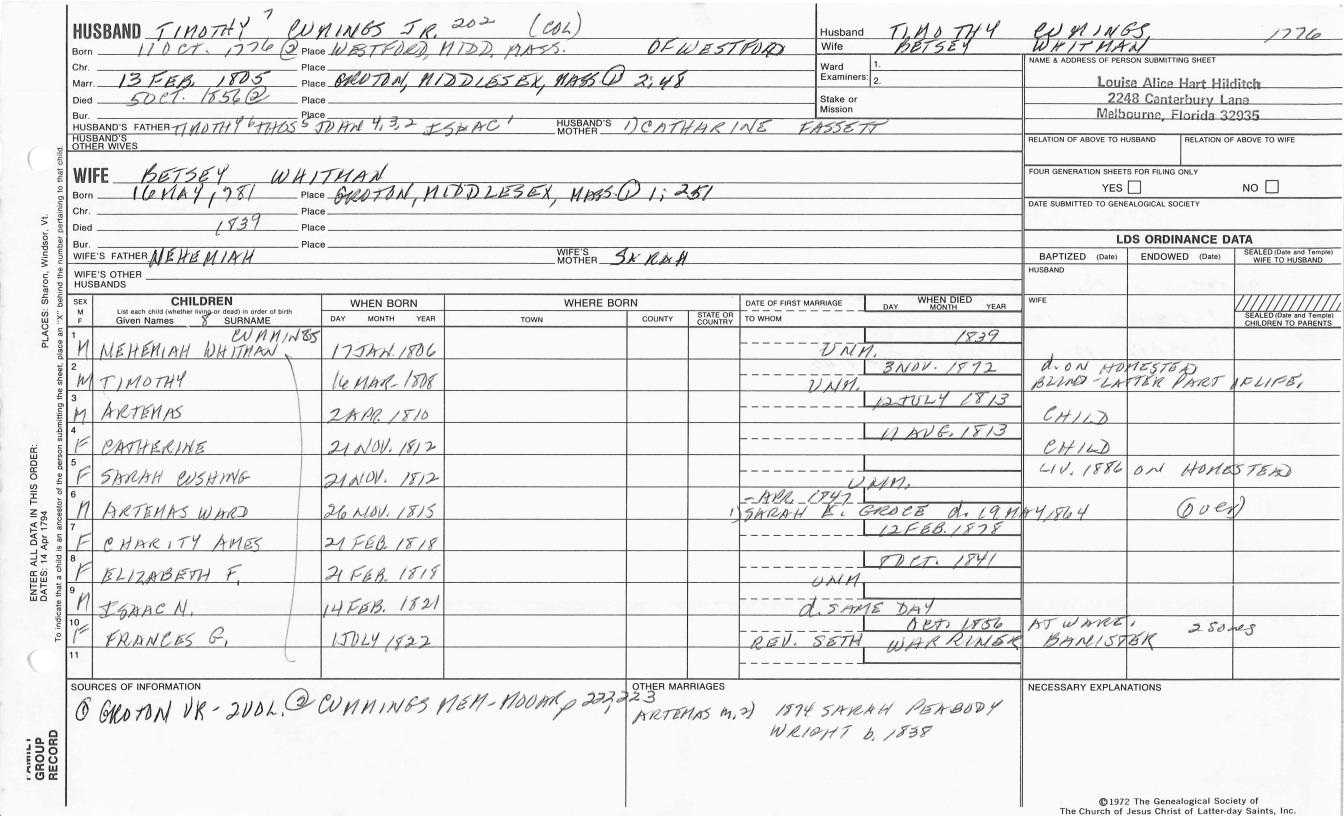 HUSBAND TIMOTHY 7 CUMINGS JR. 202 (COL)
Born 11 OCT. 1776 ② Place WESTFORD, MIDD. MASS. OF WESTFORD
Chr. Place
Marr. 13 FEB. 1805 Place GROTON, MIDDLESEX, MASS ① 2; 48
Died 5 OCT. 1856 ② Place
Bur. Place
HUSBAND'S FATHER TIMOTHY 6 THOS 5 JOHN 4, 3, 2 ISAAC 1 HUSBAND'S MOTHER 1) CATHARINE FASSETT
HUSBAND'S OTHER WIVES
Husband TIMOTHY CUMINGS, 1776
Wife BETSEY WHITMAN
Ward Examiners: 1.
2.
Stake or Mission
NAME & ADDRESS OF PERSON SUBMITTING SHEET
Louise Alice Hart Hilditch
2248 Canterbury Lane
Melbourne, Florida 32935
RELATION OF ABOVE TO HUSBAND RELATION OF ABOVE TO WIFE
FOUR GENERATION SHEETS FOR FILING ONLY
YES NO
DATE SUBMITTED TO GENEALOGICAL SOCIETY
WIFE BETSEY WHITMAN
Born 16 MAY 1781 Place GROTON, MIDDLESEX, MASS. ① 1; 251
Chr. Place
Died 1839 Place
Bur. Place
WIFE'S FATHER NEHEMIAH WIFE'S MOTHER SARAH
WIFE'S OTHER HUSBANDS
LDS ORDINANCE DATA
BAPTIZED (Date) ENDOWED (Date) SEALED (Date and Temple) WIFE TO HUSBAND
HUSBAND
WIFE
SEALED (Date and Temple) CHILDREN TO PARENTS
SEX M F CHILDREN WHEN BORN WHERE BORN DATE OF FIRST MARRIAGE WHEN DIED
List each child (whether living or dead) in order of birth
Given Names 8 SURNAME DAY MONTH YEAR TOWN COUNTY STATE OR COUNTRY TO WHOM DAY MONTH YEAR
1 M NEHEMIAH WHITMAN CUMMINGS 17 JAN. 1806 UNM. 1839
2 M TIMOTHY 16 MAR. 1808 UNM. 3 NOV. 1872 d. ON HOMESTEAD BLIND-LATTER PART OF LIFE.
3 M ARTEMAS 2 APR. 1810 12 JULY 1813 CHILD
4 F CATHERINE 21 NOV. 1812 17 AUG. 1813 CHILD
5 F SARAH CUSHING 21 NOV. 1812 UNM. LIV. 1886 ON HOMESTEAD
6 M ARTEMAS WARD 26 NOV. 1815 - APR. 1847 1) SARAH E. GROCE d. 19 MAY 1864 (over)
7 F CHARITY AMES 21 FEB. 1818 12 FEB. 1878
8 F ELIZABETH F. 21 FEB. 1818 UNM. 8 OCT. 1841
9 M ISAAC N. 14 FEB. 1821 d. SAME DAY
10 F FRANCES G. 1 JULY 1822 REV. SETH WARRINER BANISTER OCT. 1856 AT WARE. 2 sons
11
SOURCES OF INFORMATION
① GROTON VR - 2 VOL. ② CUMMINGS MEM-MOOAR p 222, 223
OTHER MARRIAGES
ARTEMAS m. 2) 1874 SARAH PEABODY
WRIGHT b. 1838
NECESSARY EXPLANATIONS
©1972 The Genealogical Society of
The Church of Jesus Christ of Latter-day Saints, Inc.
ENTER ALL DATA IN THIS ORDER:
DATES: 14 Apr 1794 PLACES: Sharon, Windsor, Vt.
To indicate that a child is an ancestor of the person submitting the sheet, place an "X" behind the number pertaining to that child.
FAMILY GROUP RECORD